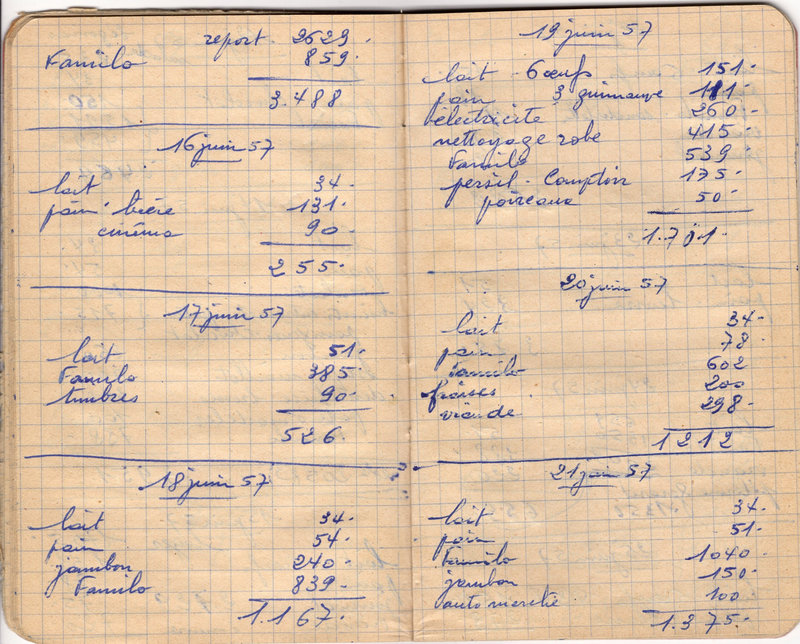 report. 2629.
Familo 859.
3.488
16 juin 57
lait 34.
pain bière 131.
cinéma 90.
255.
17 juin 57
lait 51.
Familo 385.
timbres 90.
526.
18 juin 57
lait 34.
pain 54.
jambon 240.
Familo 839.
1.167.
19 juin 57
lait - 6 œufs 151.
pain 3 guimauve 111.
électricité 260.
nettoyage robe 415.
Familo 539.
persil. Comptoir 175.
poireaux 50.
1.701.
20 juin 57
lait 34.
pain 78.
Familo 602
fraises 200
viande 298.
1212
21 juin 57
lait 34.
pain 51.
Familo 1040.
jambon 150.
auto 100
1.375.